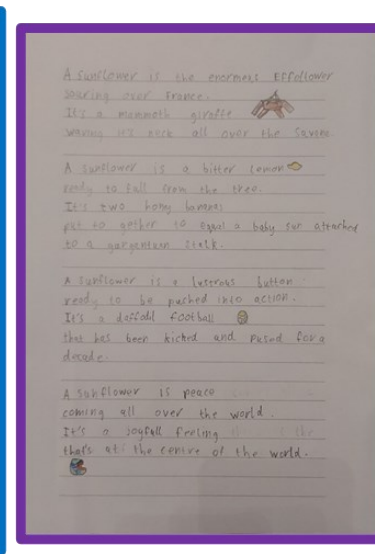 A sunflower is the enormers Effeltower
soaring over france.
It's a mammoth giraffe
waving it's neck all over the
A sunflower is a bitter lemon
ready to fall from the tree.
It's two bananas
put to gether to equal a baby sun attached
to a gargentuan stalk.
A sunflower is a lusterous button
ready to be pushed into action.
It's a daffodil football
that has been kicked and for a
decade.
A sunflower is peace
coming all over the world.
It's a joyfull feeling
that's at the centre of the world.